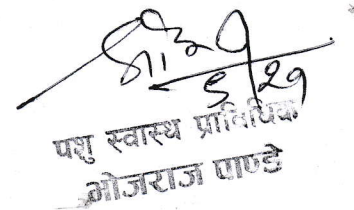 ५/२१
पशु स्वास्थ्य प्राविधिक
भोजराज पाण्डे